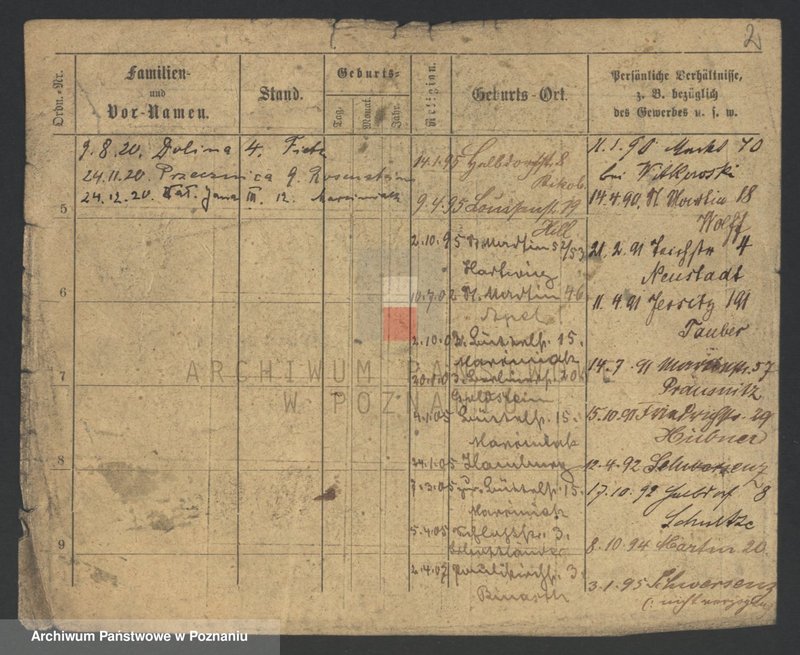 2
Ordn.-Nr.
Familien-
und
Vor-Namen.
Stand.
Geburts-
Tag.
Monat.
Jahr.
Religion.
Geburts-Ort.
Persönliche Verhältnisse,
z. B. bezüglich
des Gewerbes u. s. w.
9.8.20. Dolina 4.
24.11.20. Przecznica 9. Rosenstein
24.12.20. Marciniak
5
6
7
8
9
14.1.95 Halbdorfstr 8
9.4.95 Louisenst 19
Hill
2.10.95 St Martin 52/53
Hartwieg
10.7.02 St. Martin 46
Apel
2.10.03 15.
Marciniak
Goldstein
4.1.05 15.
Marciniak
24.1.05 Hamburg
7.3.05 15.
Marciniak
5.4.05 3.
2.4.07 Paulikirchstr. 3.
11.1.90 Markt 70
bei Witkowski
14.4.90. St Martin 18
Wolff
21.2.91 Teichstr 4
Neustadt
11.4.91 Jersitz 191
Tauber
14.7.91 57
Prausnitz
15.10.91 Friedrichstr. 29
Hübner
12.4.92 Schwersenz
17.10.92 Halbdorf 8
Schultze
8.10.94 Martin 20.
3.1.95 Schwersenz
ARCHIWUM PAŃSTWOWE
W POZNANIU
Archiwum Państwowe w Poznaniu